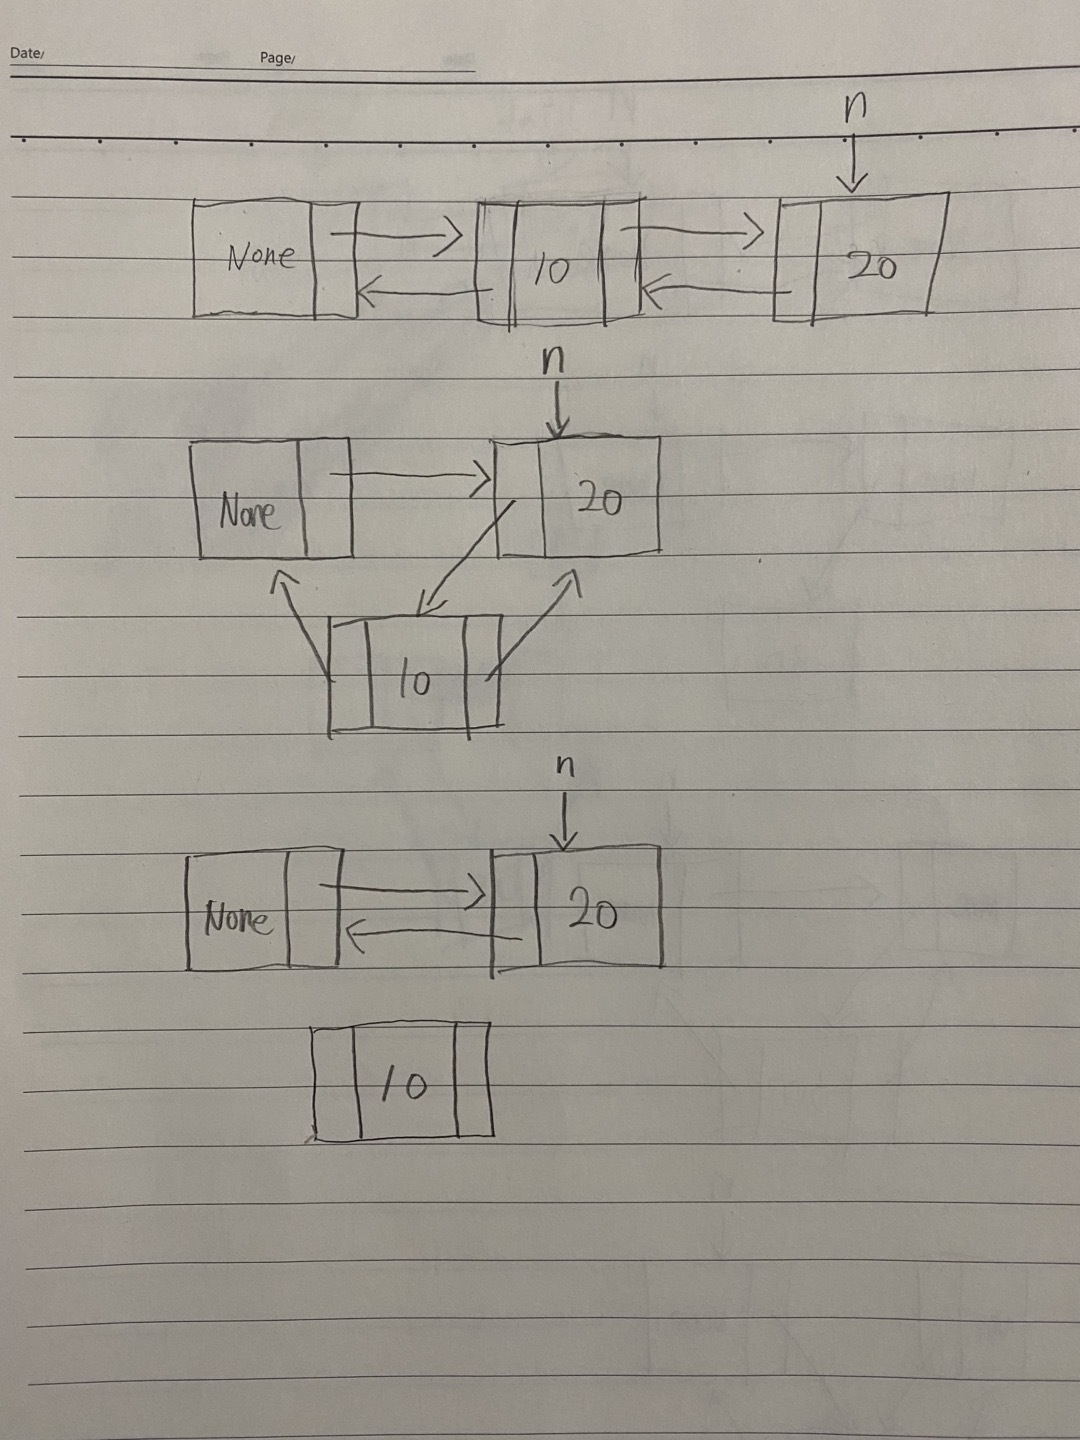 Date/ Page/
n
None 10 20
n
None 20
10
n
None 20
10